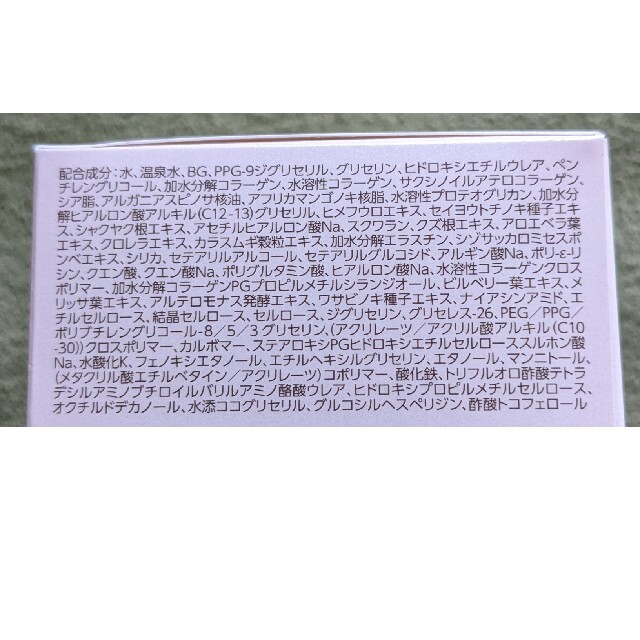 配合成分:水、温泉水、BG、PPG-9ジグリセリル、グリセリン、ヒドロキシエチルウレア、ペン
チレングリコール、加水分解コラーゲン、水溶性コラーゲン、サクシノイルアテロコラーゲン、
シア脂、アルガニアスピノサ核油、アフリカマンゴノキ核脂、水溶性プロテオグリカン、加水分
解ヒアルロン酸アルキル(C12-13)グリセリル、ヒメフウロエキス、セイヨウトチノキ種子エキ
ス、シャクヤク根エキス、アセチルヒアルロン酸Na、スクワラン、クズ根エキス、アロエベラ葉
エキス、クロレラエキス、カラスムギ穀粒エキス、加水分解エラスチン、シゾサッカロミセスポ
ンベエキス、シリカ、セテアリルアルコール、セテアリルグルコシド、アルギン酸Na、ポリ-ε-リ
シン、クエン酸、クエン酸Na、ポリグルタミン酸、ヒアルロン酸Na、水溶性コラーゲンクロス
ポリマー、加水分解コラーゲンPGプロピルメチルシランジオール、ビルベリー葉エキス、メ
リッサ葉エキス、アルテロモナス発酵エキス、ワサビノキ種子エキス、ナイアシンアミド、エ
チルセルロース、結晶セルロース、セルロース、ジグリセリン、グリセレス-26、PEG/PPG/
ポリブチレングリコール-8/5/3グリセリン、(アクリレーツ/アクリル酸アルキル(C10
-30))クロスポリマー、カルボマー、ステアロキシPGヒドロキシエチルセルローススルホン酸
Na、水酸化K、フェノキシエタノール、エチルヘキシルグリセリン、エタノール、マンニトール、
(メタクリル酸エチルベタイン/アクリレーツ)コポリマー、酸化鉄、トリフルオロ酢酸テトラ
デシルアミノブチロイルバリルアミノ酪酸ウレア、ヒドロキシプロピルメチルセルロース、
オクチルドデカノール、水添ココグリセリル、グルコシルヘスペリジン、酢酸トコフェロール